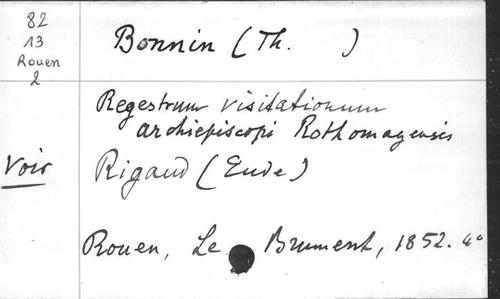 82
13
Rouen
2
Bonnin (Th. )
Regestrum visitationum
archiepiscopi Rothomagensis
Voir Rigaud (Eude)
Rouen, Le Brument, 1852. 4°